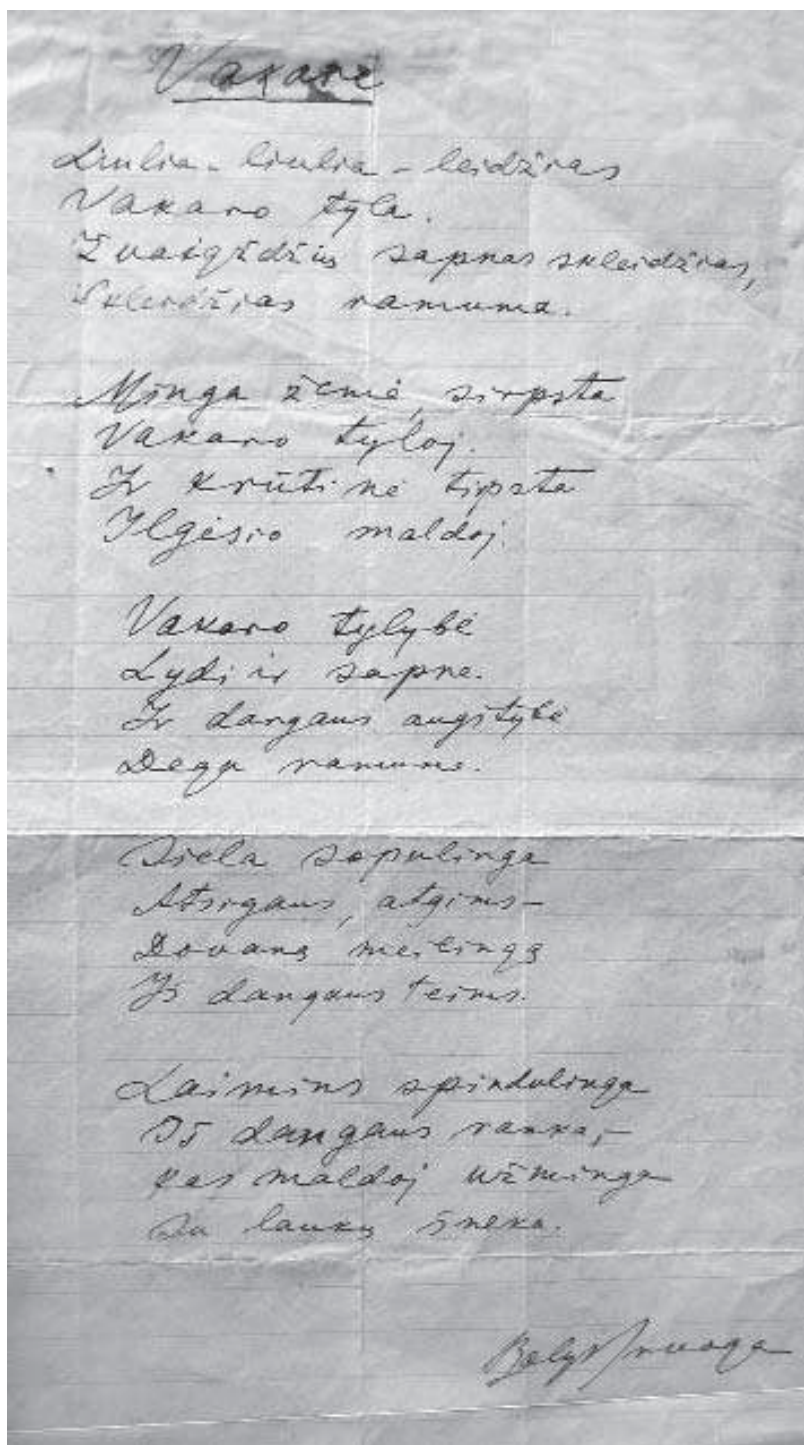 Vakare
Liulia - liulia - leidžias
Vakaro tyla.
Žvaigždžių sapnas skleidžias,
Skleidžias ramuma.
Minga žemė, sirpsta
Vakaro tyloj.
Ir krūtinė tirpsta
Ilgėsio maldoj.
Vakaro tylybė
Lydi ir sapne.
Ir dangaus augštybė
Dega ramume.
Siela sopulinga
Atsigaus, atgims –
Dovaną meilingą
Iš dangaus teims.
Laimins spindulinga
Iš dangaus ranka, –
Kas maldoj užminga
Su laukų šneka.
Balys Sruoga